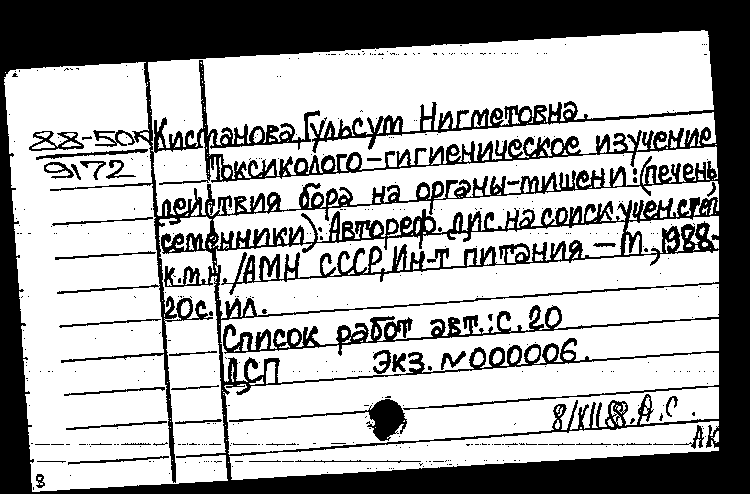 88-50
9172
Кистанова, Гульсум Нигметовна.
Токсиколого-гигиеническое изучение
действия бора на органы-мишени: (печень,
семенники): Автореф. дис. на соиск. учен. степ
к.м.н. /АМН СССР, Ин-т питания. – М., 1988.-
20с. ил.
Список работ авт.: с. 20
ДСП Экз. №000006.
8/XII 88. А.С.
АК
8